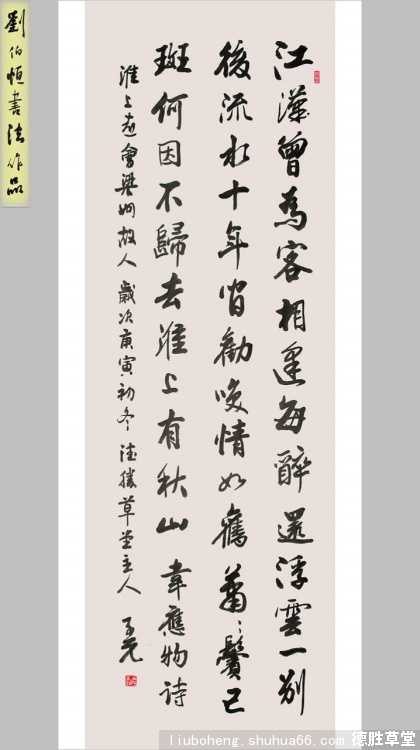 劉伯恒書法作品
江漢曾為客相逢每醉還浮雲一別
後流水十年間歡咲情如舊蕭〻鬢已
斑何因不歸去淮上有秋山 韋應物詩
淮上喜會梁州故人 歲次庚寅初冬 德勝草堂主人
liuboheng.shuhua66.com 德胜草堂